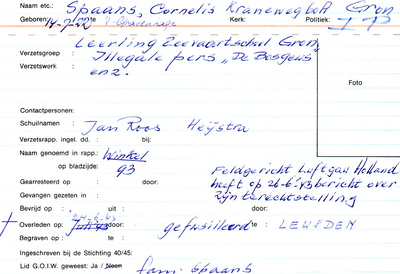 Naam etc.: Spaans, Cornelis Kranewegboh Gron
Geboren: 14-7-22 te 's Gravenhage Kerk: Politiek:
Leerling Zeevaartschool Gron.
Verzetsgroep: Illegale pers "De Bosgeus"
Verzetswerk: enz.
Foto
Contactpersonen:
Schuilnamen: Jan Roos Heijstra
Verzetsrapp. ingel. dd.: bij:
Naam genoemd in rapp.: Winkel
op bladzijde: 93
Feldgericht Luftgau Holland
Gearresteerd op: door: heeft op 26-6-'43 bericht over
Gevangen gezeten in: zijn terechtstelling
Bevrijd op: uit: door:
24-6-43
† Overleden op: Juli 43 door: gefusilleerd te: LEUSDEN
Begraven op: te:
Ingeschreven bij de Stichting 40/45:
Lid G.O.I.W. geweest: Ja / Neen fam. Spaans